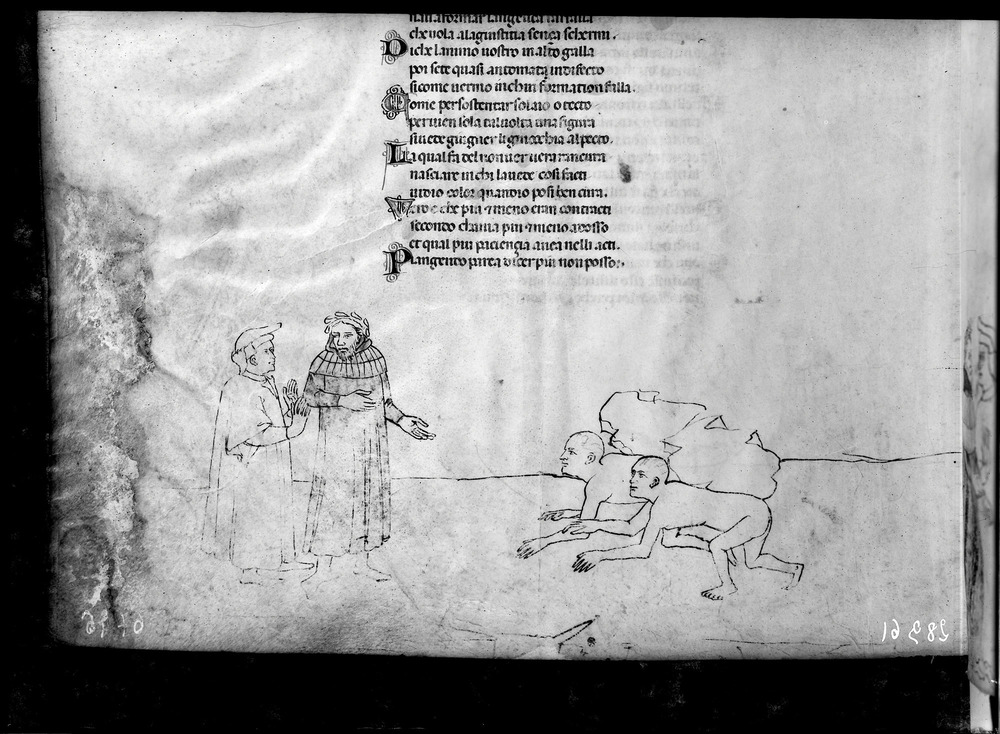 che uola ala giustitia sença schermi.
Di che lanimo uostro in alto galla
poi sete quasi antomata in difecto
si come uermo in chui formation falla.
Come per sostentar solaio o tecto
per mensola tal uolta una figura
si uede giugner le ginocchia al pecto.
La qual fa del non uer uera rancura
nasciere in chi la uede cosi facti
uidio color quando posi ben cura.
Vero e che piu e meno eran contracti
secondo chauia piu e meno adosso
et qual piu paciença auea nelli acti.
Piangendo parea dicer piu non posso.
28961